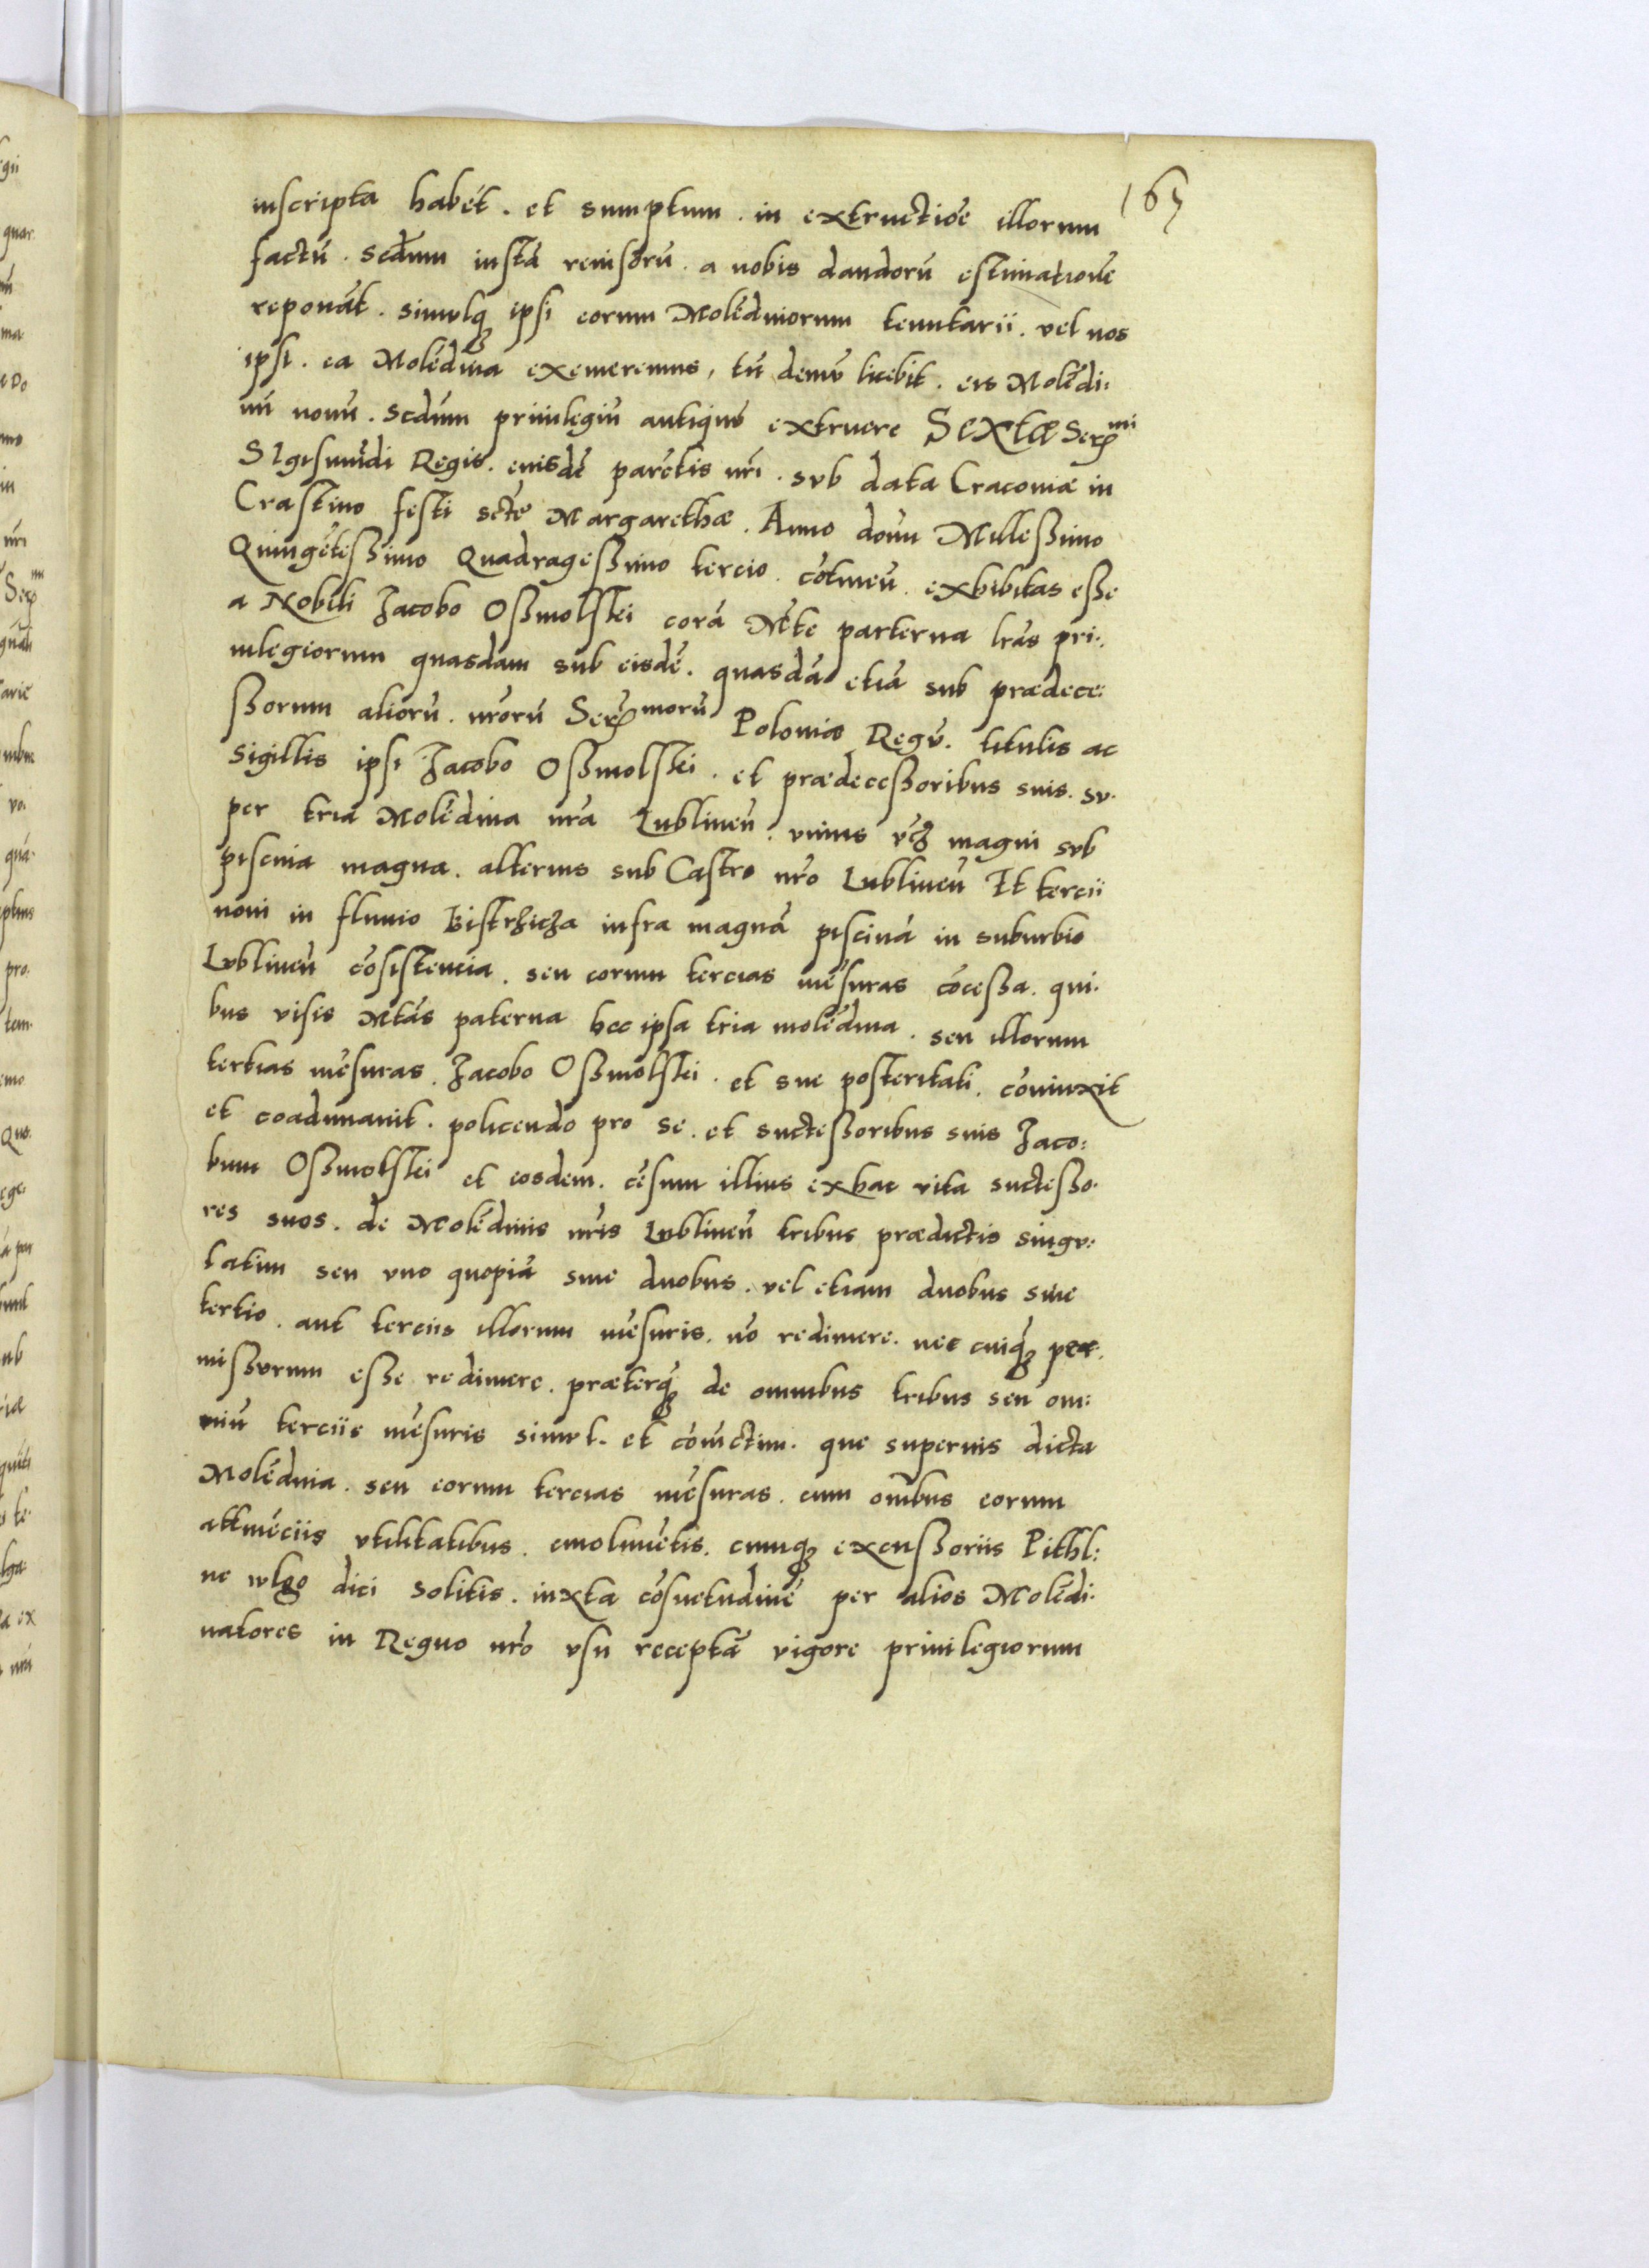 165
inscripta habēt . et sumptum . in extructiōe illorum
factū . scdūm iustā reuisorū . a nobis dandorū estimationē
reponāt . simulq ipsi eorum Molēdinorum tenutarii . vel nos
ipsi . ea Molēdina exemeremus , tū demū licebit . eis Molēdi:
nū nouū . scdūm priuilegiū antiquū extruere Sextæ Sermi
SIgismūdi Regis . eiusdē parētis nrī . sub data Cracoviæ in
Crastino festi sctē Margarethæ . Anno domī Millessimo
Quingētessimo Quadragessimo tercio . cōtineñ . exhibitas esse
a Nobili Jacobo Ossmolskei corā Mte parterna lrās pri:
uilegiorum quasdam sub eisdē . quasdā etiā sub prædece:
ssorum aliorū . nrōrū Sermorū Poloniæ Regū . titulis ac
sigillis ipsi Jacobo Ossmolskei . et prædecessoribus suis . su.
per tria Molēdina nrā Lublineñ . vnius vcz magni sub
piscina magna . alterius sub Castro nrō Lublineñ Et tercii
noui in fluuio Bistrzicza infra magnā piscinā in suburbio
Lublineñ cōsistencia . seu eorum tercias mēsuras cōcessa . qui.
bus visis Mtās paterna hec ipsa tria molēdina . seu illorum
tertias mēsuras . Jacobo Ossmolskei . et sue posteritati . coniūxit
et coadunauit . policendo pro se . et suctessoribus suis Jaco:
bum Ossmolskei et eosdem . cēsum illius exhac vita suctesso.
res suos . de Molēdinis nrīs Lublineñ tribus prædictis singu:
latim seu vno quopiā siue duobus . vel etiam duobus siue
tertio . aut terciis illorum mēsuris . nō redimere . nec cuiq per.
missurum esse redimere . præterq de omnibus tribus seu om:
niū terciis mēsuris simul . et cōiūctim . que superius dicta
Molēdina . seu eorum tercias mēsuras . cum omībus eorum
attinēciis vtilitatibus . emolumētis . cumq excussoriis Pithl:
ne wlgo dici solitis . iuxta cōsuetudinē per alios Molēdi.
natores in Regno nrō vsu receptā vigore priuilegiorum